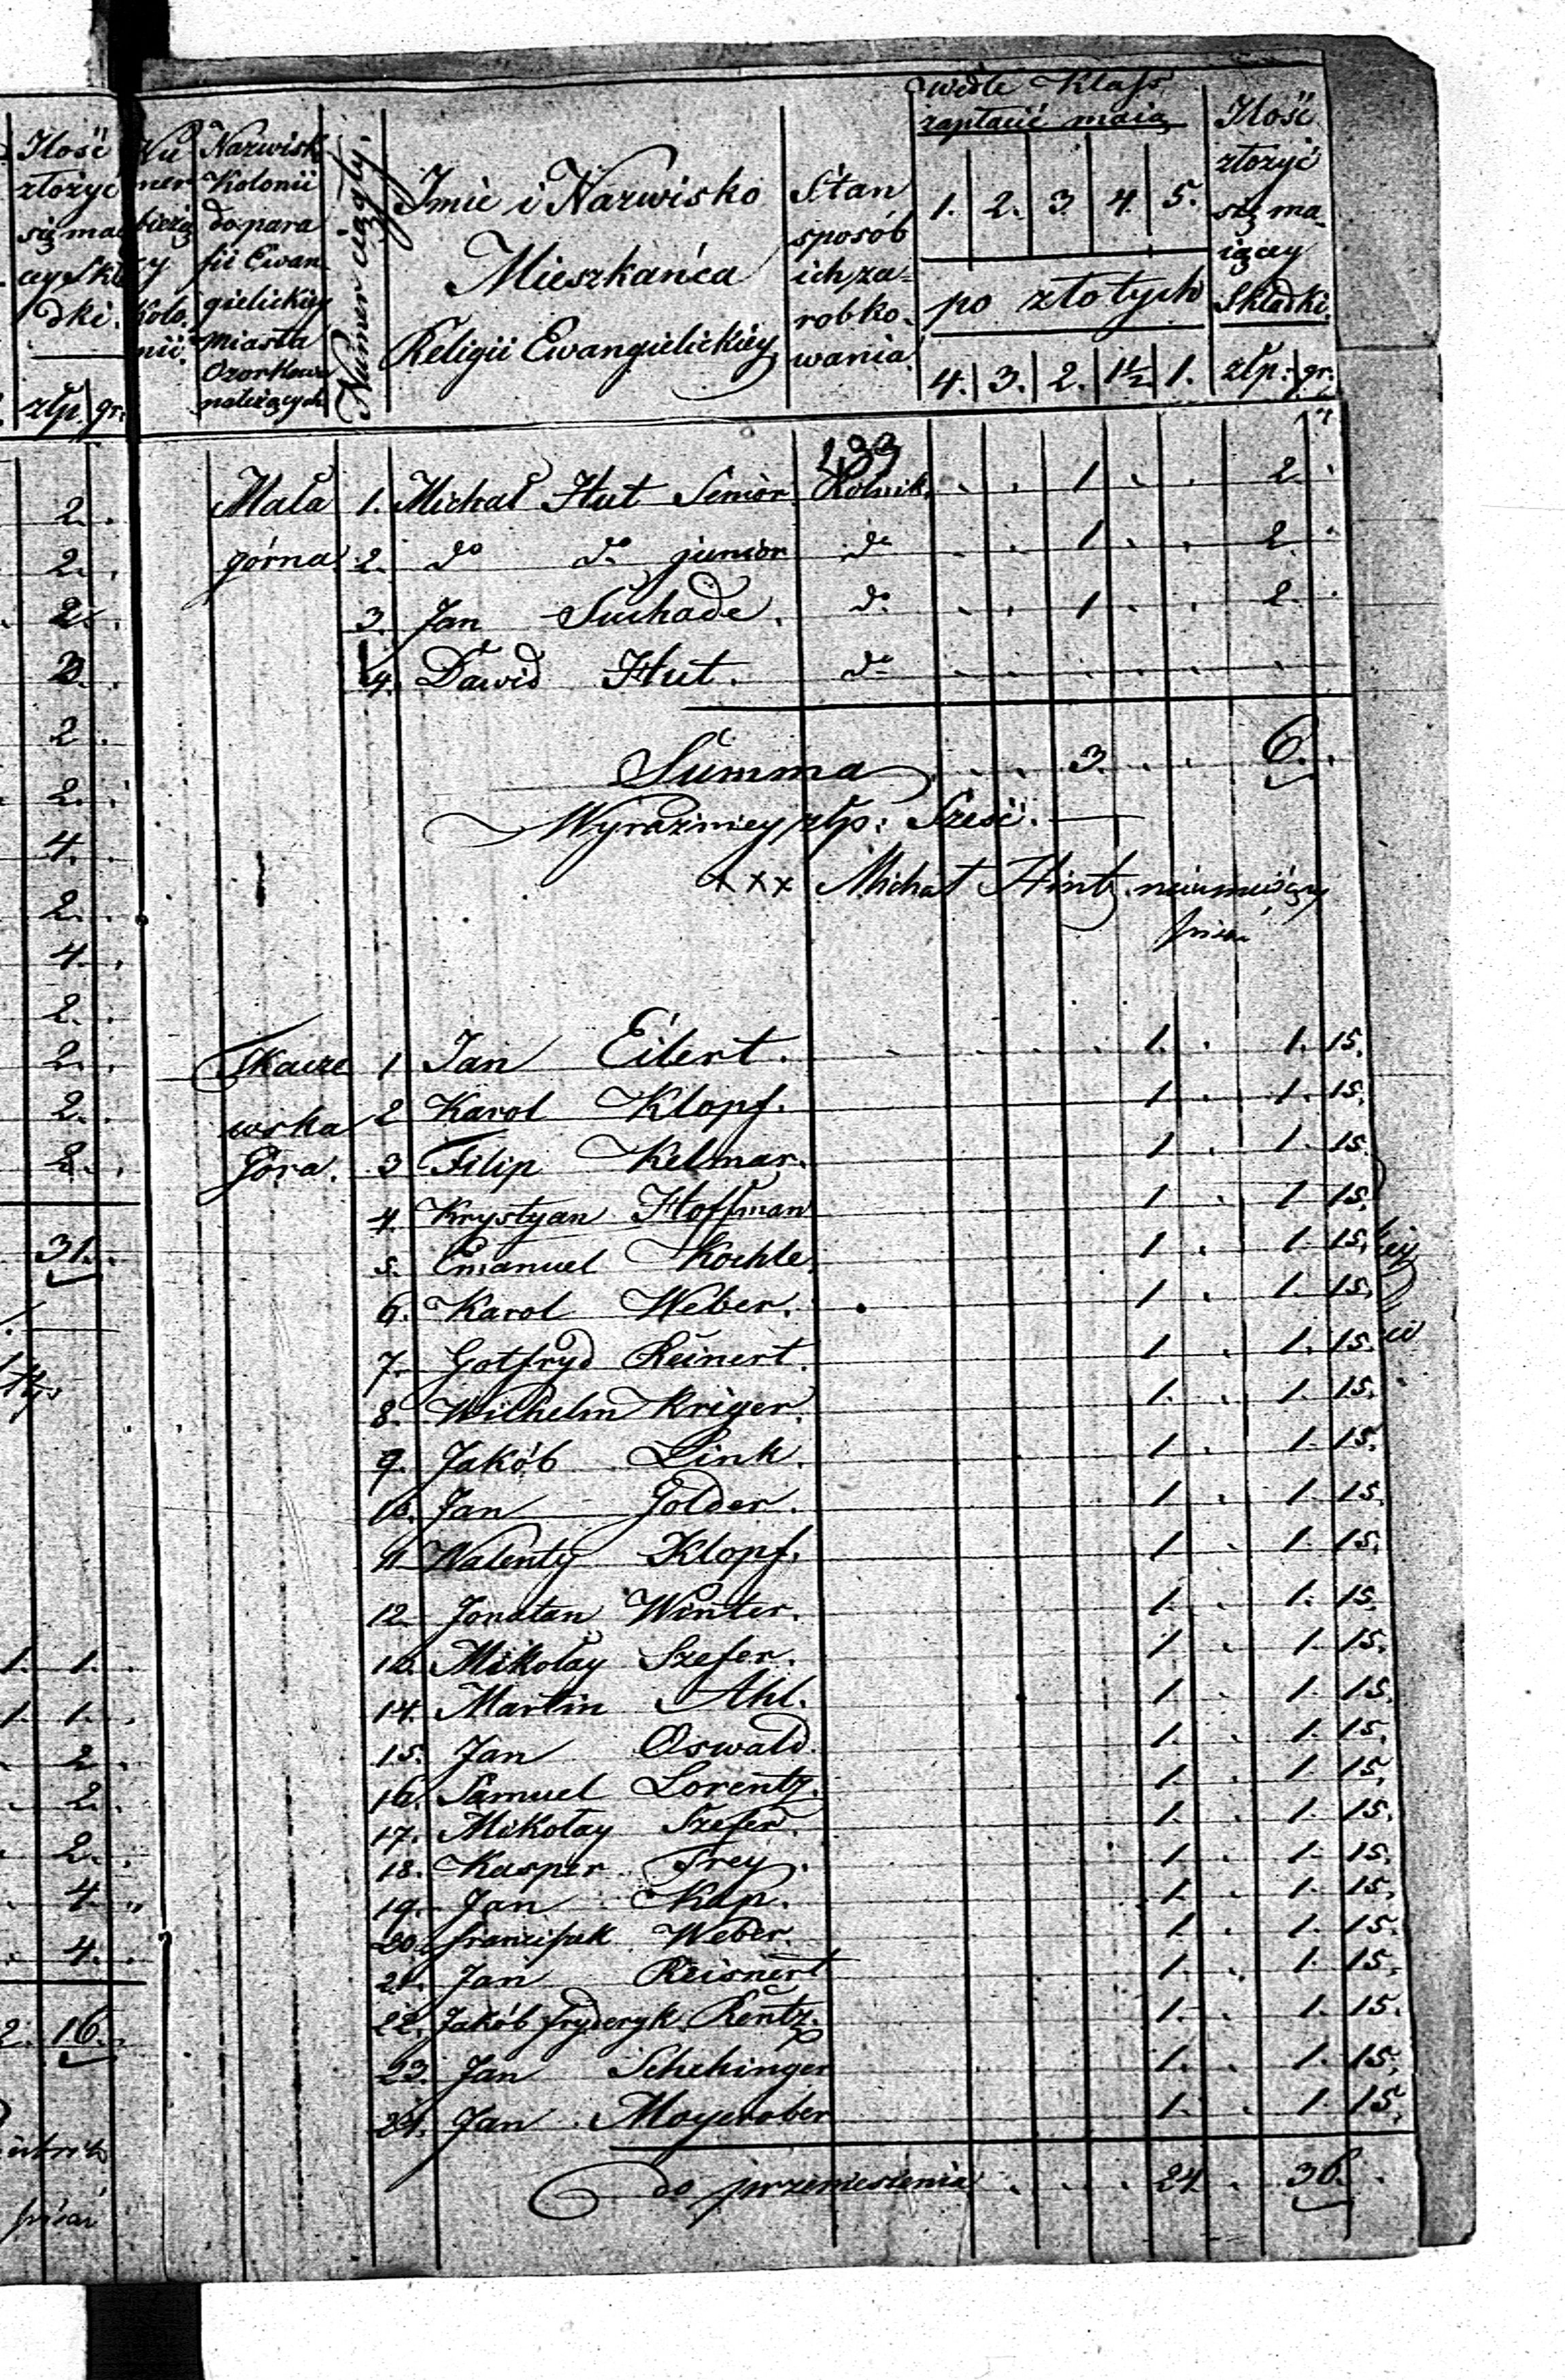 Ilość
złożyć
się ma
cey Skł
dki.
złp. gr.
2.
2.
2.
2.
2
2.
4.
2.
4.
2.
2.
2.
2.
31.
1. 1.
1. 1.
2.
2.
2.
4.
4.
2. 16.
pisać
Nu
mer
bieżą
cy
Kolo
nii.
Nazwisk
Kolonii
do para
fii Ewan
gielickiey
miasta
Ozorkowa
należących
Numer ciągły.
Imie i Nazwisko
Mieszkańca
Religii Ewangielickiey
Stan
sposób
ich za-
robko-
wania.
wedle Klass
zapłacić maią
1. 2. 3. 4. 5.
po złotych
4. 3. 2. 1½ 1.
Ilość
złożyć
się ma-
iącey
Składki.
złp. gr.
Mała 1. Michał Hut Senior Rolnik. 1 2.
górna 2. do do junior do 1 2.
3. Jan Suchade. do 1 2.
4. Dawid Hut. do
Summa 3. 6.
Wyraźniey złp: Sześć.
xxx Michał Hintz nieumieiący
pisać
Skacze 1 Jan Eilert. 1. 1. 15.
wska 2 Karol Klopf. 1 1. 15.
Góra. 3 Filip Kelmar. 1 1. 15.
4. Krystyan Hoffman 1 1. 15.
5. Emanuel Kochle. 1 1. 15.
6. Karol Weber. 1 1. 15.
7. Gotfryd Reinert. 1 1. 15.
8. Wilhelm Kriger. 1. 1. 15.
9. Jakób Link. 1 1. 15.
10. Jan Golder. 1 1. 15.
11 Walenty Klopf. 1 1. 15.
12. Jonatan Winter. 1. 1. 15.
13. Mikołay Szefer. 1 1. 15.
14. Martin Ahl. 1 1. 15.
15. Jan Oswald. 1. 1. 15.
16. Samuel Lorentz. 1. 1. 15.
17. Mikołay Szefer. 1. 1. 15.
18. Kasper Frey. 1 1. 15.
19. Jan Kap. 1. 1. 15.
20. franciszek Weber. 1. 1. 15.
21. Jan Reisnert 1. 1. 15.
22. Jakób fryderyk Rentz. 1. 1. 15.
23. Jan Schehinger 1. 1. 15.
24. Jan Mayerober 1. 1. 15.
do przeniesienia 24 36.